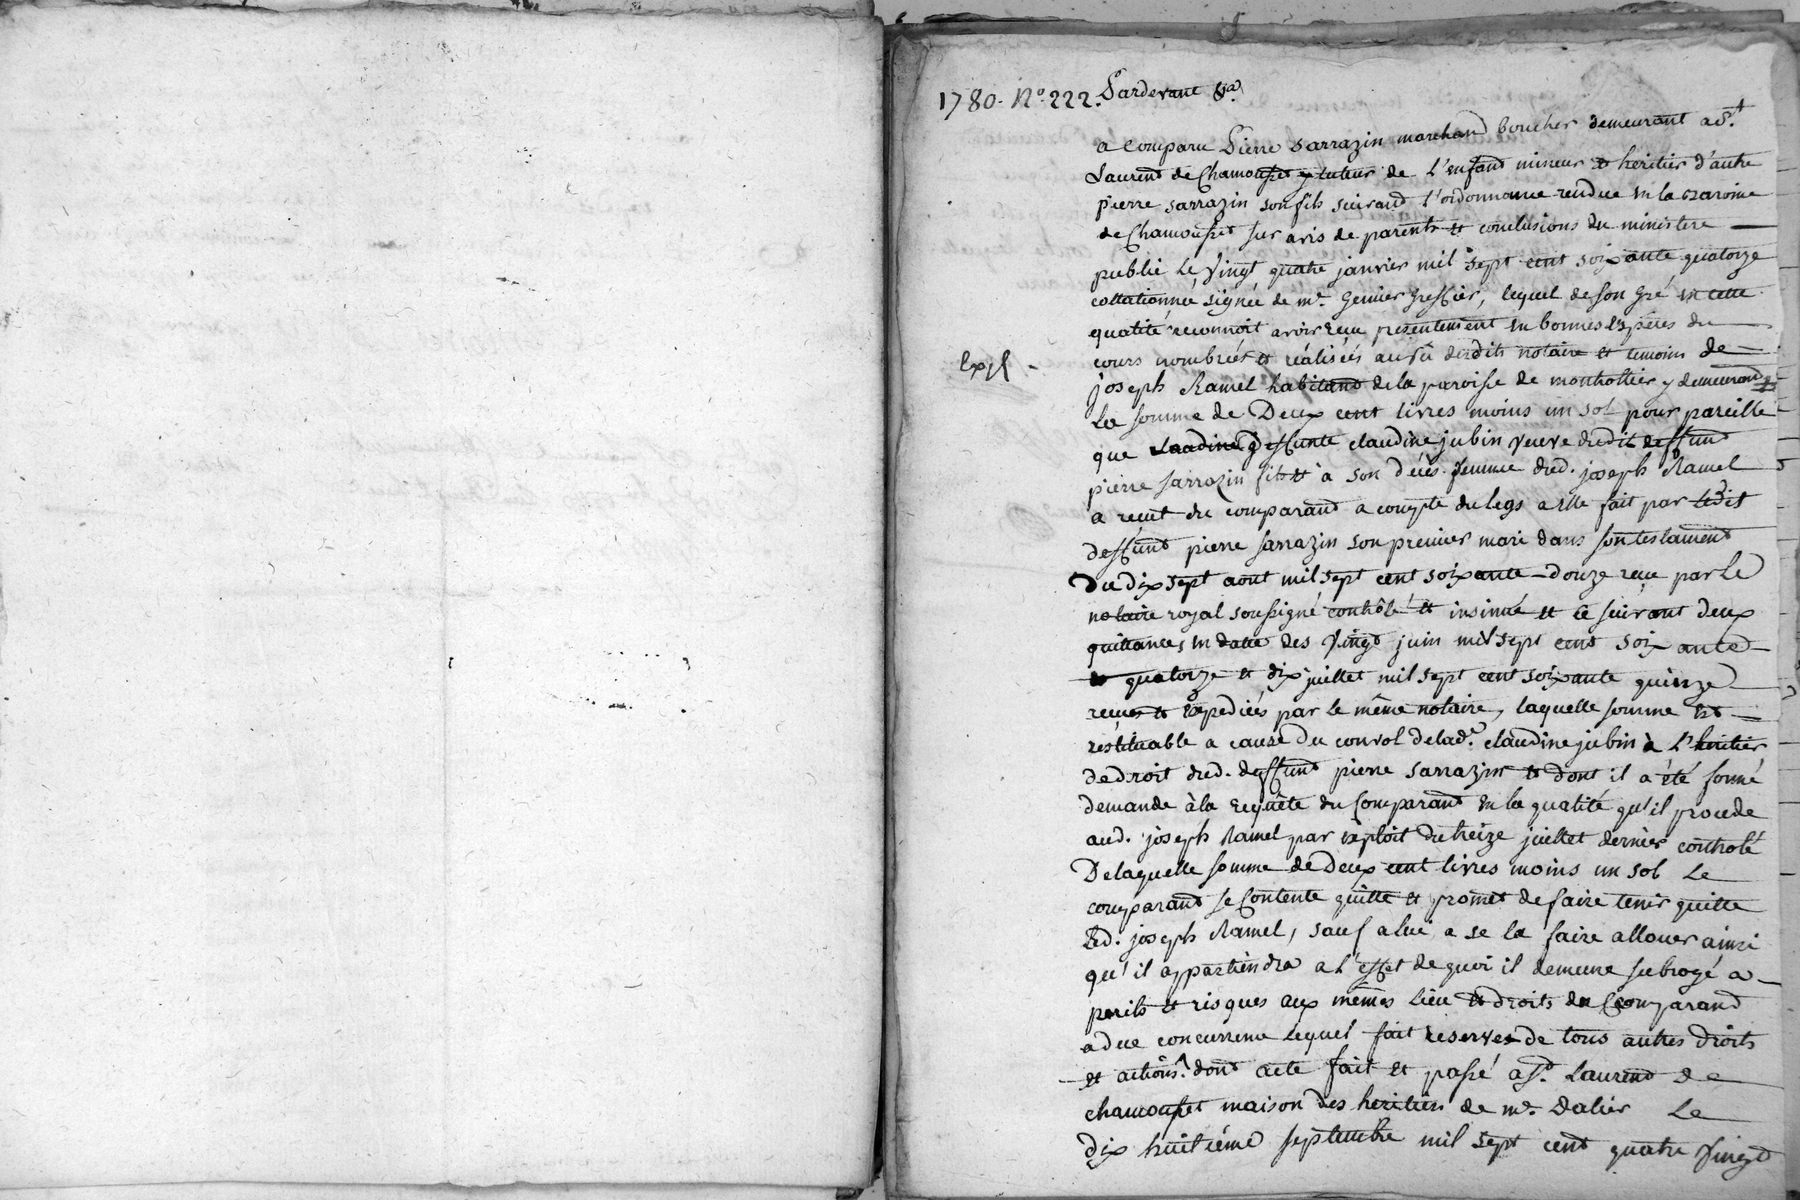 1780. No. 222. Pardevant &a.
a Comparu Pierre Sarrazin marchand boucher demeurant a St.
Laurent de Chamousset y tuteur de L'enfant mineur et heritier d'autre
pierre sarrazin son fils suivand l'ordonnance rendue en la Baronie
de Chamousset sur avis de parents et conclusions du ministere
public Le vingt quatre janvier mil sept cent soixante quatorze
collationnée signée de me. Genier Greffier, lequel de son Gré en cette
qualité reconnoit avoir reçu presentement en bonnes Espéces du
cours nombrées et réalisées au vû desdits notaire et temoins de
Expl.
joseph Ramel habitand de la paroisse de monthottier y demeurand
La somme de Deux cent livres moins un sol pour pareille
que deffunte claudine jubin veuve dudit deffund
pierre sarrazin fils et à son décés femme dud. joseph Ramel
a reçut du comparand a compte du legs a elle fait par ledit
deffund pierre sarrazin son premier mari dans son testament
du dix sept aout mil sept cent soixante-douze reçu par le
notaire royal soussigné contrôlé et insinué et ce suivant deux
quittances en datte des vingt juin mil sept cent soixante
quatorze et dix juillet mil sept cent soixante quinze
reçues et Expediées par le même notaire, laquelle somme Est
restituable a cause du convol de lade. claudine jubin à L'heritier
de droit dud. deffund pierre sarrazin et dont il a été formé
demande à la requête du Comparand en la qualité qu'il procede
aud. joseph Ramel par exploit du treize juillet dernier controlé
De laquelle somme de deux cent livres moins un sol Le
comparand se Contente quitte et promet de faire tenir quitte
Led. joseph Ramel, sauf a lui a se la faire allouer ainsi
qu'il appartiendra a l'effet de quoi il demeure subrogé a
perils et risques aux mêmes Lieu et droits du Comparand
a due concurrence lequel fait reserves de tous autres droits
et actions. dont acte fait et passé a St. Laurend de
chamousset maison des heritiers de me. Dalier Le
dix huitiéme septembre mil sept cent quatre vingt